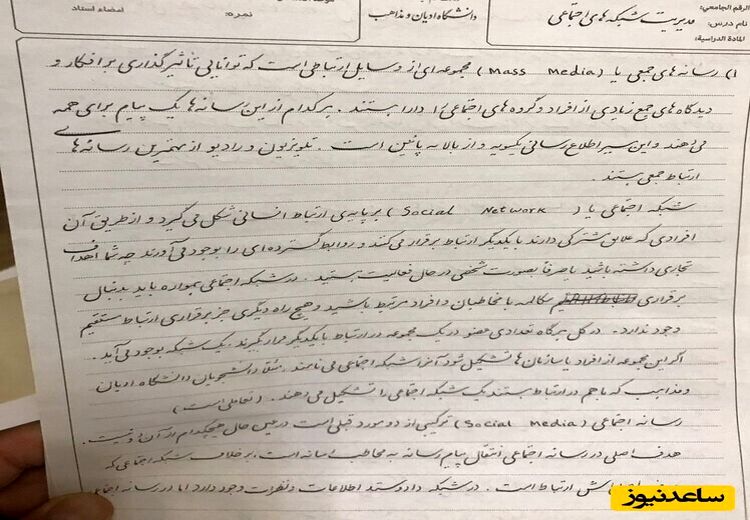 الرقم الجامعي:
نام درس:
المادة الدراسية:
مدیریت شبکه های اجتماعی
دانشگاه ادیان و مذاهب
نمره:
امضاء استاد
۱) رسانه های جمعی یا (Mass Media) مجموعه ای از وسایل ارتباطی است که توانایی تاثیرگذاری بر افکار و
دیدگاه های جمع زیادی از افراد و گروه های اجتماعی را دارا هستند. هرکدام از این رسانه ها یک پیام برای همه
می دهند و این سیر اطلاع رسانی یکسویه و از بالا به پائین است. تلویزیون و رادیو از مهمترین رسانه های
ارتباط جمعی هستند.
شبکه اجتماعی یا (Social Network) بر پایه ی ارتباط انسانی شکل می گیرد و از طریق آن
افرادی که علایق مشترکی دارند با یکدیگر ارتباط برقرار می کنند و روابط گسترده ای را بوجود می آورند چه شما اهداف
تجاری داشته باشید یا صرفاً بصورت شخصی در حال فعالیت هستید. در شبکه اجتماعی همواره باید بدنبال
برقراری مکالمه با مخاطبان و افراد مرتبط باشید و هیچ راه دیگری جز برقراری ارتباط مستقیم
وجود ندارد. در کل هرگاه تعدادی عضو در یک مجموعه در ارتباط با یکدیگر قرار گیرند، یک شبکه بوجود می آید.
اگر این مجموعه از افراد یا سازمان ها تشکیل شود آنرا شبکه اجتماعی می نامند. مثلا دانشجویان دانشگاه ادیان
و مذاهب که با هم در ارتباط هستند یک شبکه اجتماعی را تشکیل می دهند. (تعاملی است)
رسانه اجتماعی (Social Media) ترکیبی از دو مورد قبلی است در عین حال هیچکدام از آن دو نیست.
هدف اصلی در رسانه اجتماعی انتقال پیام رسانه به مخاطب است، برخلاف شبکه اجتماعی که
ارتباط است. در شبکه داد و ستد اطلاعات و نظرات وجود دارد اما در رسانه اجتماعی
ساعدنیوز